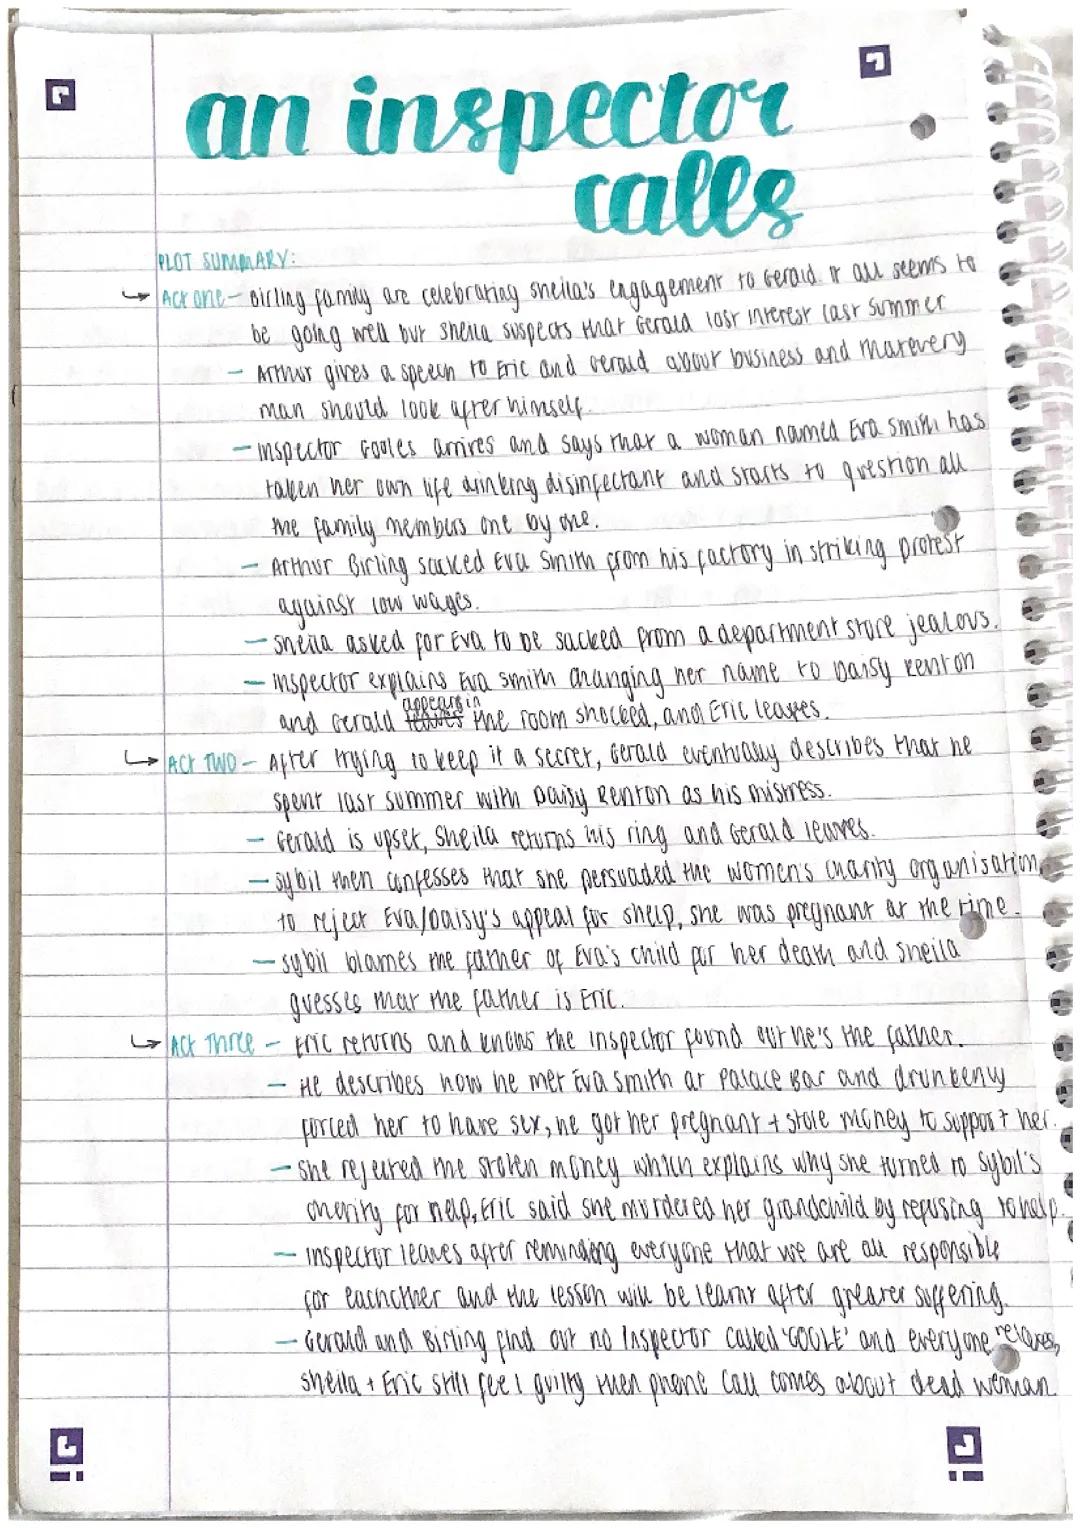 an inspector
calls
PLOT SUMMARY:
↳ Act one - Birling family are celebrating sheila's engagement to Gerald. It all seems to
be going well but Sheila suspects that Gerald lost interest last summer
- Arthur gives a speech to Eric and Gerald about business and that every
man should look after himself.
- inspector Gooles arrives and says that a woman named Eva Smith has
taken her own life drinking disinfectant and starts to question all
the family members one by one.
- Arthur Birling sacked Eva Smith from his factory in striking protest
against low wages.
- sheila asked for Eva to be sacked from a department store jealous.
- inspector explains Eva Smith changing her name to Daisy Renton
and Gerald leaves appears in the room shocked, and Eric leaves.
↳ Act TWO - After trying to keep it a secret, Gerald eventually describes that he
spent last summer with Daisy Renton as his mistress.
- Gerald is upset, Sheila returns his ring and Gerald leaves.
- sybil then confesses that she persuaded the women's charity organisation
to reject Eva/Daisy's appeal for shelp, she was pregnant at the time.
- sybil blames the father of Eva's child for her death and Sheila
guesses that the father is Eric.
↳ Act Three - Eric returns and knows the inspector found out he's the father.
- He describes how he met Eva Smith at Palace Bar and drunkenly
forced her to have sex, he got her pregnant + stole money to support her.
- she rejected the stolen money which explains why she turned to Sybil's
charity for help, Eric said she murdered her grandchild by refusing to help.
- inspector leaves after reminding everyone that we are all responsible
for eachother and the lesson will be learnt after greater suffering.
- Gerald and Birling find out no Inspector called 'GOOLE' and everyone relaxes,
sheila + Eric still feel guilty then phone call comes about dead woman